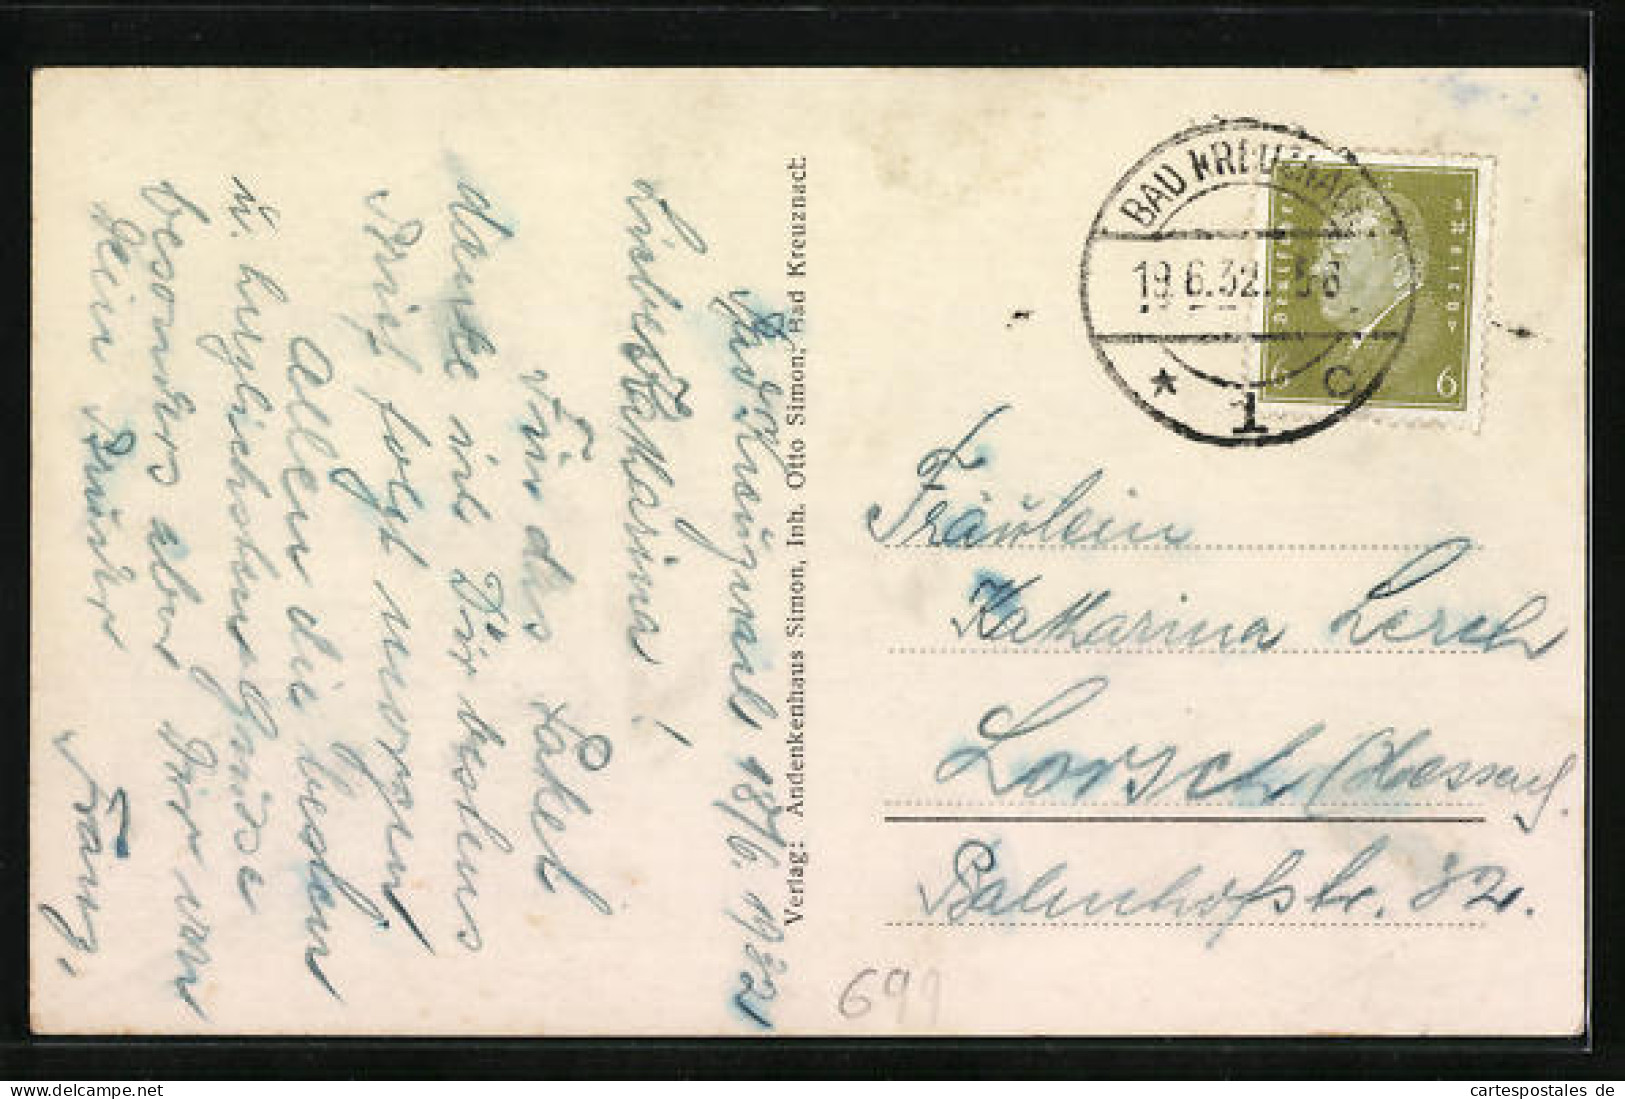 Bad Kreuznach 18/6. 1932
Liebe Katharina!
Für das Paket
danke ich Dir bestens
Brief folgt morgen!
Allen die besten
u. herzlichsten Grüsse
besonders aber Dir von
Dein Bruder
Franz,
Verlag: Andenkenhaus Simon, Inh. Otto Simon, Bad Kreuznach
BAD KREUZNACH
19.6.32. 5-6
* 1 c
Deutsches Reich
6 6
Fräulein
Katharina Lerch
Lorsch (Hessen).
Bahnhofstr. 32.
699
cartespostales de